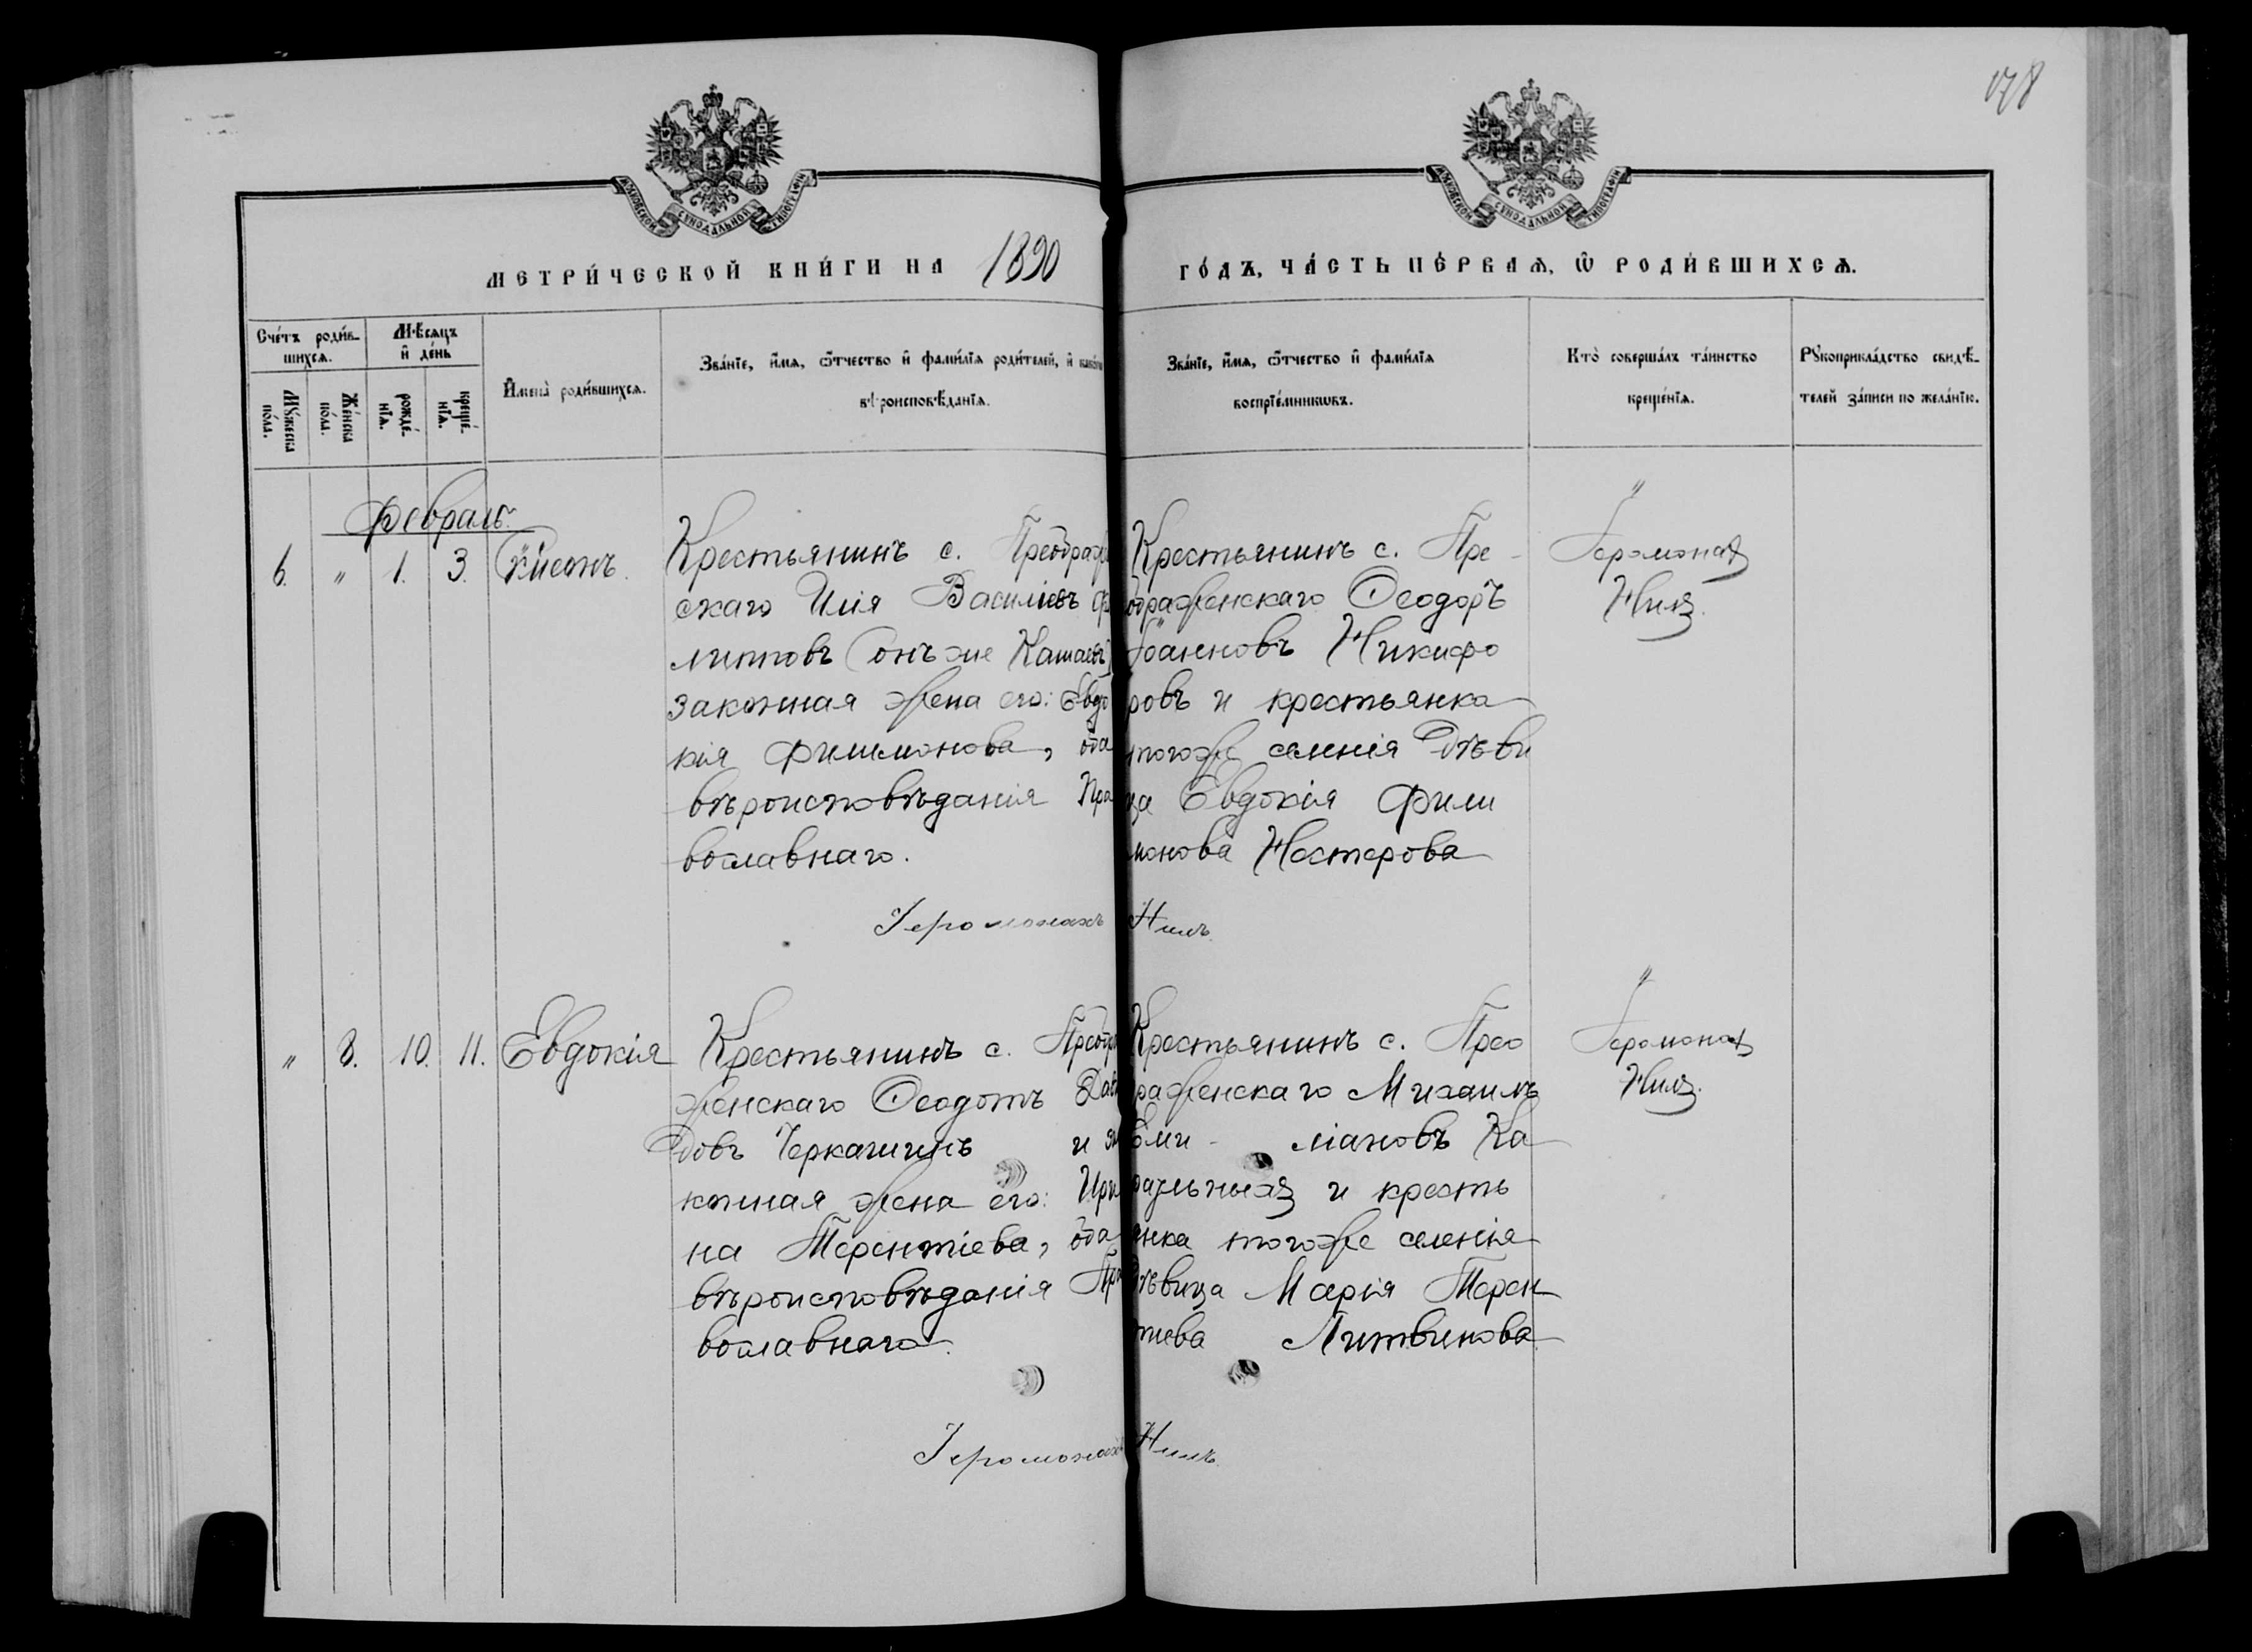 178
МОСКОВСКОЙ СѴНОДАЛЬНОЙ ТИПОГРАФІИ
МОСКОВСКОЙ СѴНОДАЛЬНОЙ ТИПОГРАФІИ
МЕТРИ́ЧЕСКОЙ КНИ́ГИ НА 1890 ГО́ДЪ, ЧА́СТЬ ПЕ́РВАѦ, Ѡ РОДИ́ВШИХСѦ.
Сче́тъ роди́в-
шихсѧ.
Мꙋ́жеска
по́ла.
Же́нска
по́ла.
Мѣ́сѧцъ
и҆ де́нь
рожде́-
нїѧ.
креще́-
нїѧ.
И҆мена̀ роди́вшихсѧ.
Зва́нїе, и҆́мѧ, ѻ҆́тчество и҆ фами́лїѧ роди́телей, и҆
вѣроисповѣ́данїѧ.
Зва́нїе, и҆́мѧ, ѻ҆́тчество и҆ фами́лїѧ
воспрїе́мникѡвъ.
Кто̀ соверша́лъ та́инство
креще́нїѧ.
Рꙋкоприкла́дство свидѣ́-
телей за́писи по жела́нїю.
Февраль.
6. " 1. 3.
Крестьянинъ с. Преображен
скаго Илія Васильевъ Фи
липповъ (онъ же Катаевъ)
законная жена его: Евдо
кія Филимонова, оба
вѣроисповѣданія Пра
вославнаго.
Крестьянинъ с. Пре-
ображенскаго Ѳеодоръ
Іоанновъ Никифо
ровъ и крестьянка
тогоже селенія дѣви
ца Евдокія Фили
монова Нестерова
Іеромонах
Нилъ.
Іеромонахъ Нилъ.
" 8. 10. 11. Евдокія
Крестьянинъ с. Преобра
женскаго Ѳеодотъ Давы
довъ Черкашинъ и за
конная жена его: Ири
на Терентіева, оба
вѣроисповѣданія Пра
вославнаго.
Крестьянинъ с. Прео
браженскаго Михаилъ
Еми- ліановъ Ка
и кресть
янка тогоже селенія
дѣвица Марія Терен
тіева Литвинова
Іеромонах
Нилъ.
Іеромонахъ Нилъ.